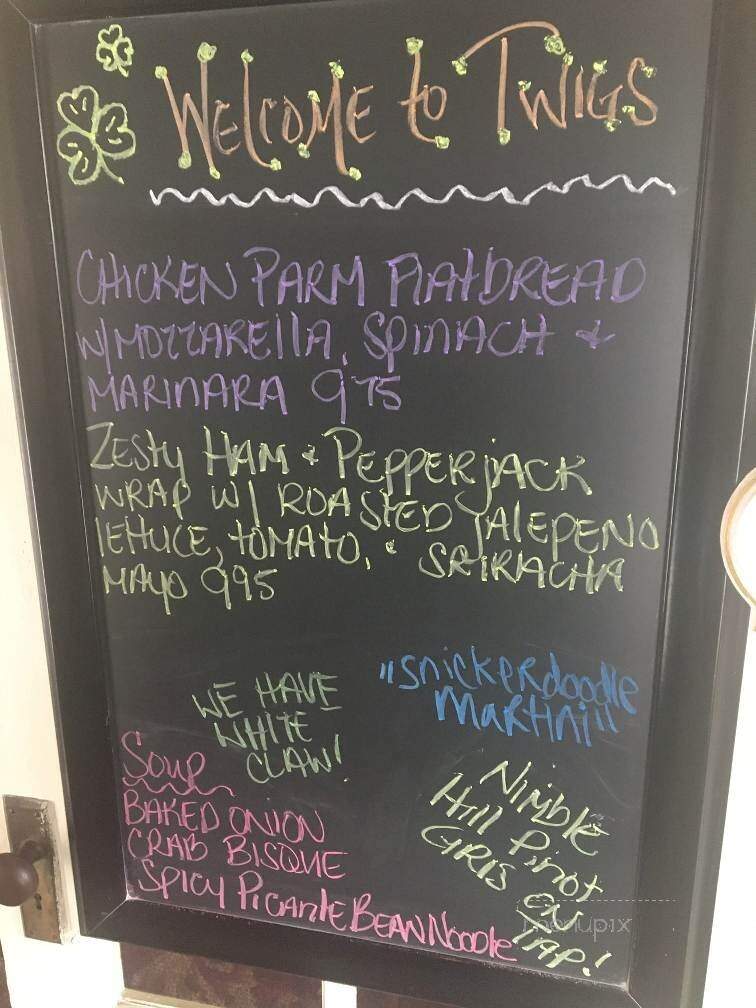 WELCOME to TWIGS
CHICKEN PARM FLATBREAD
W/MOZZARELLA, SPINACH &
MARINARA 975
ZESTY HAM & PEPPERJACK
WRAP W/ ROASTED JALEPENO
LETTUCE, TOMATO, & SRIRACHA
MAYO 995
"Snickerdoodle
MARTINI"
WE HAVE
WHITE
CLAW!
SOUP
BAKED ONION
CRAB BISQUE
SPICY PICANTE BEAN NOODLE
NIMBLE
Hill Pinot
GRIS ON
TAP!
menupix